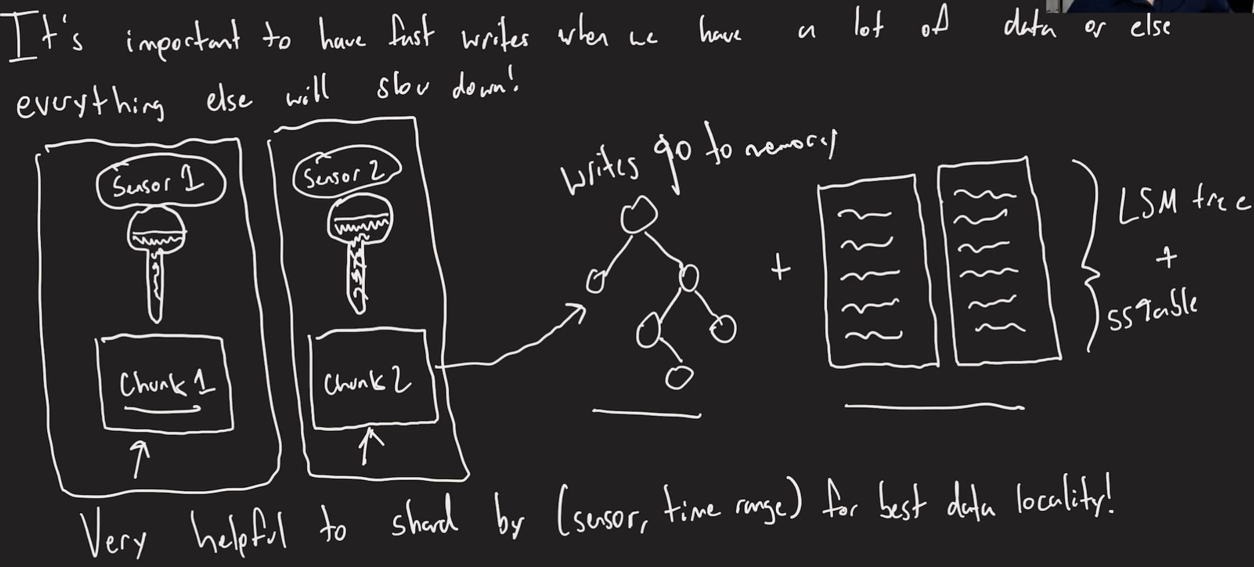 It's important to have fast writes when we have a lot of data or else
everything else will slow down!
Sensor 1
Sensor 2
Chunk 1
Chunk 2
writes go to memory
+
LSM tree
+
SSTable
Very helpful to shard by (sensor, time range) for best data locality!